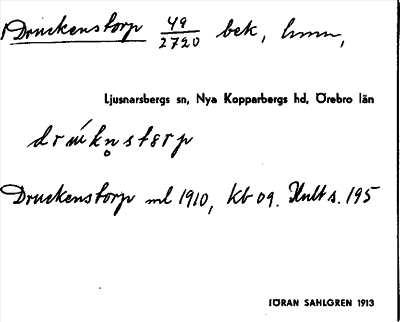 Druckenstorp 49/2720 bek, hmn,
Ljusnarsbergs sn, Nya Kopparbergs hd, Örebro län
Druckenstorp ml 1910, Kb 09. Hult s. 195
JÖRAN SAHLGREN 1913